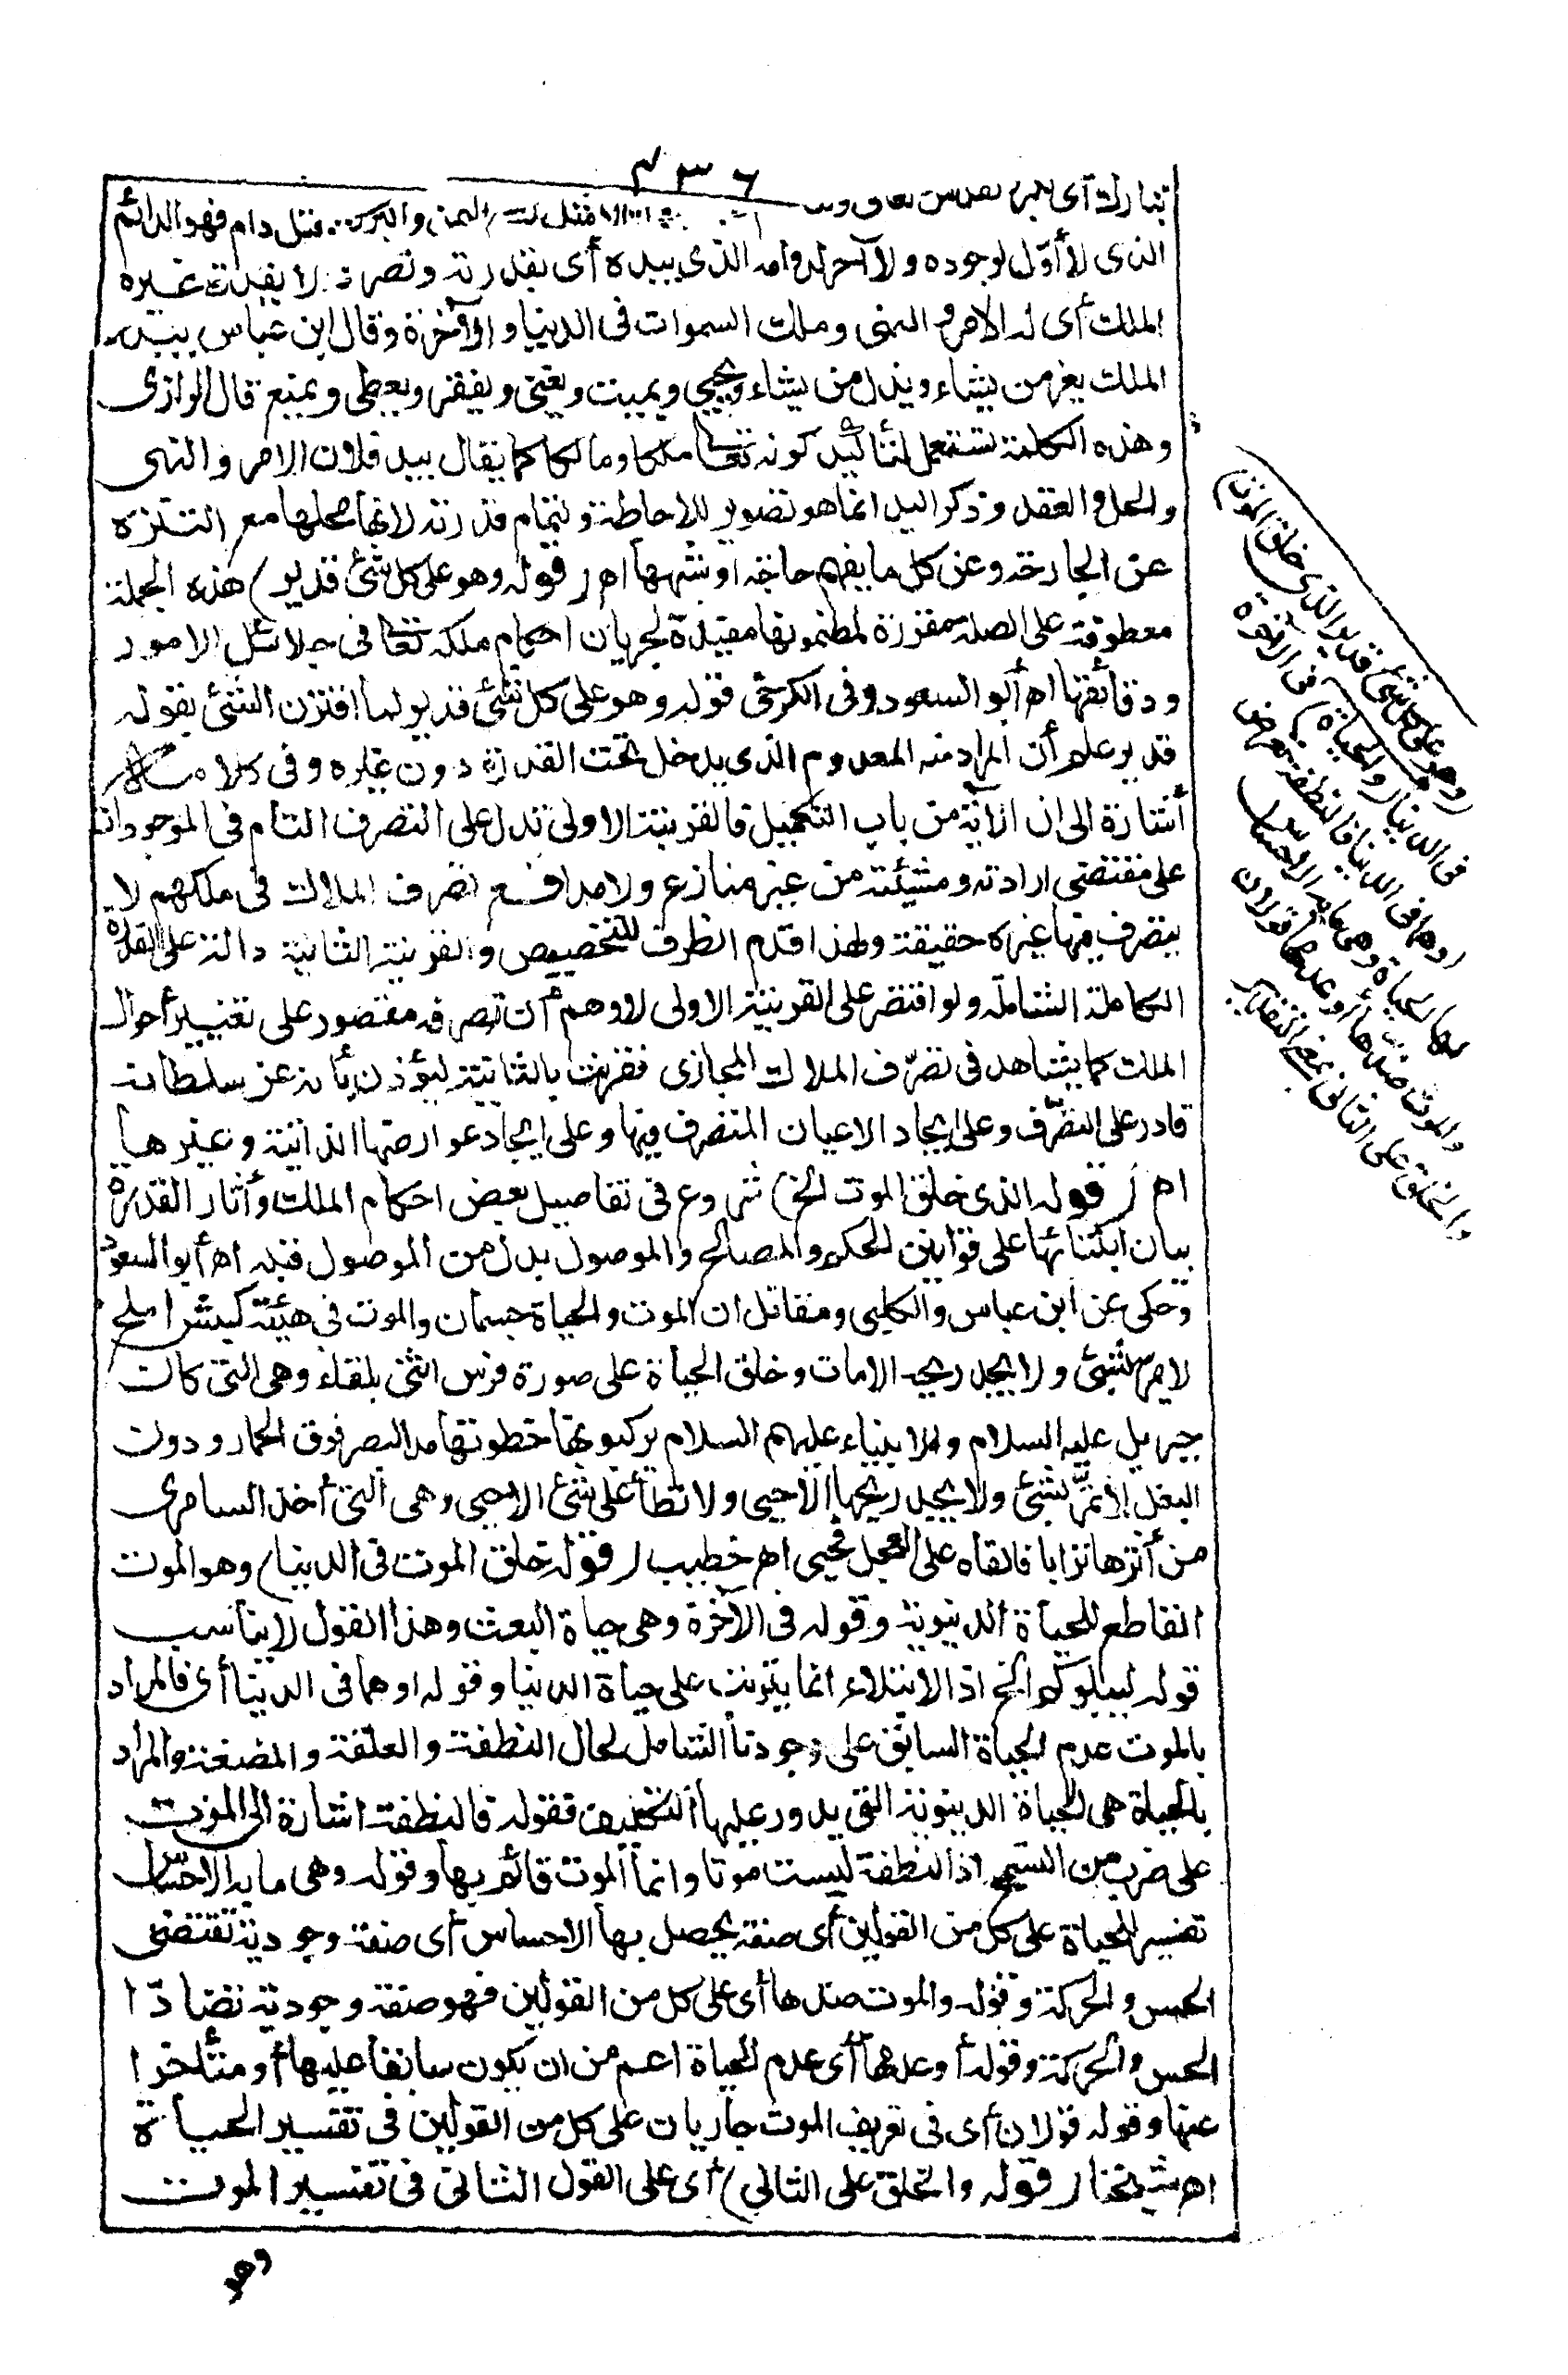 ٤٣٦
تبارك أى تكبر وتقدس وتعالى
والبركة وقيل دام فهو الدائم
الذى لا أوّل لوجوده ولا آخر لدوامه الذى بيده أى بقدرته وتصرفه لا بقدرة غيره
الملك أى له الامر والنهى وملك السموات فى الدنيا والآخرة وقال ابن عباس بيده
الملك يعز من يشاء ويذل من يشاء ويحيى ويميت ويغنى ويفقر ويعطى ويمنع قال الرازى
وهذه الكلمة تستعمل لتأكيد كونه تعالى ملكا ومالكا كما يقال بيد فلان الامر والنهى
والحل والعقد وذكر اليد انما هو تصوير للاحاطة ولتمام قدرته لانها محلها مع التنزه
عن الجارحة وعن كل ما يفهم حاجة او شبهها اه (قوله وهو على كل شئ قدير) هذه الجملة
معطوفة على الصلة مقررة لمضمونها مفيدة لجريان احكام ملكه تعالى فى جلائل الامور
ودقائقها اه أبو السعود وفى الكرخى قوله وهو على كل شئ قدير لما اقترن الشئ بقوله
قدير علم أن المراد منه المعدوم الذى يدخل تحت القدرة دون غيره وفى كلامه
أشارة الى ان الآية من باب التكميل فالقرينة الاولى تدل على التصرف التام فى الموجودات
على مقتضى ارادته ومشيئته من غير منازع ولا مدافع تصرف الملاك فى ملكهم لا
يتصرف فيها غيره حقيقة ولهذا قدم الظرف للتخصيص والقرينة الثانية دالة على القدرة
الكاملة الشاملة ولو اقتصر على القرينة الاولى لاوهم أن تصرفه مقصور على تغيير أحوال
الملك كما يشاهد فى تصرّف الملاك المجازى فقرنت بالثانية ليؤذن بأنه عز سلطانه
قادر على التصرّف وعلى ايجاد الاعيان المتصرف فيها وعلى ايجاد عوارضها الذاتية وغيرها
اه (قوله الذى خلق الموت الخ) شروع فى تفاصيل بعض احكام الملك وأثار القدرة
بيان ابتنائها على قوانين الحكم والمصالح والموصول بدل من الموصول قبله اه أبو السعود
وحكى عن ابن عباس والكلبى ومقاتل ان الموت والحياة جسمان والموت فى هيئة كبش املح
لا يمرّ بشئ ولا يجد ريحه الا مات وخلق الحياة على صورة فرس انثى بلقاء وهى التى كان
جبريل عليه السلام والانبياء عليهم السلام يركبونها خطوتها مد البصر فوق الحمار ودون
البغل لا تمرّ بشئ ولا يجد ريحها الا حيى ولا تطأ على شئ الا حيى وهى التى أخذ السامرى
من أثرها ترابا فالقاه على العجل فحيى اه خطيب (قوله خلق الموت فى الدنيا) وهو الموت
القاطع للحياة الدنيوية وقوله فى الآخرة وهى حياة البعث وهذا القول لا يناسب
قوله ليبلوكم الخ اذ الابتلاء انما يترتب على حياة الدنيا وقوله او هما فى الدنيا أى فالمراد
بالموت عدم الحياة السابق على وجودنا الشامل لحال النطفة والعلقة والمضغة والمراد
بالحياة هى الحياة الدنيوية التى يدور عليها التكليف فقوله فالنطفة اشارة الى الموت
على ضرب من التسمح اذ النطفة ليست موتا وانما الموت قائم بها وقوله وهى ما به الاحساس
تفسير للحياة على كل من القولين أى صفة يحصل بها الاحساس أى صفة وجودية تقتضى
الحس والحركة وقوله والموت ضدها أى على كل من القولين فهو صفة وجودية تضادّ
الحس والحركة وقوله أو عدمها أى عدم الحياة اعم من ان يكون سابقا عليها أو متأخرا
عنها وقوله قولان أى فى تعريف الموت جاريان على كل من القولين فى تفسير الحياة
اه شيخنا (قوله والخلق على الثانى) أى على القول الثانى فى تفسير الموت
وهو
(وهو على كل شئ قدير الذى خلق الموت)
فى الدنيا (والحياة) فى الآخرة
او هما فى الدنيا فالنطفة تعرض
لها الحياة وهى ما به الاحساس
والموت ضدها أو عدمها قولان
والخلق على الثانى بمعنى التقدير